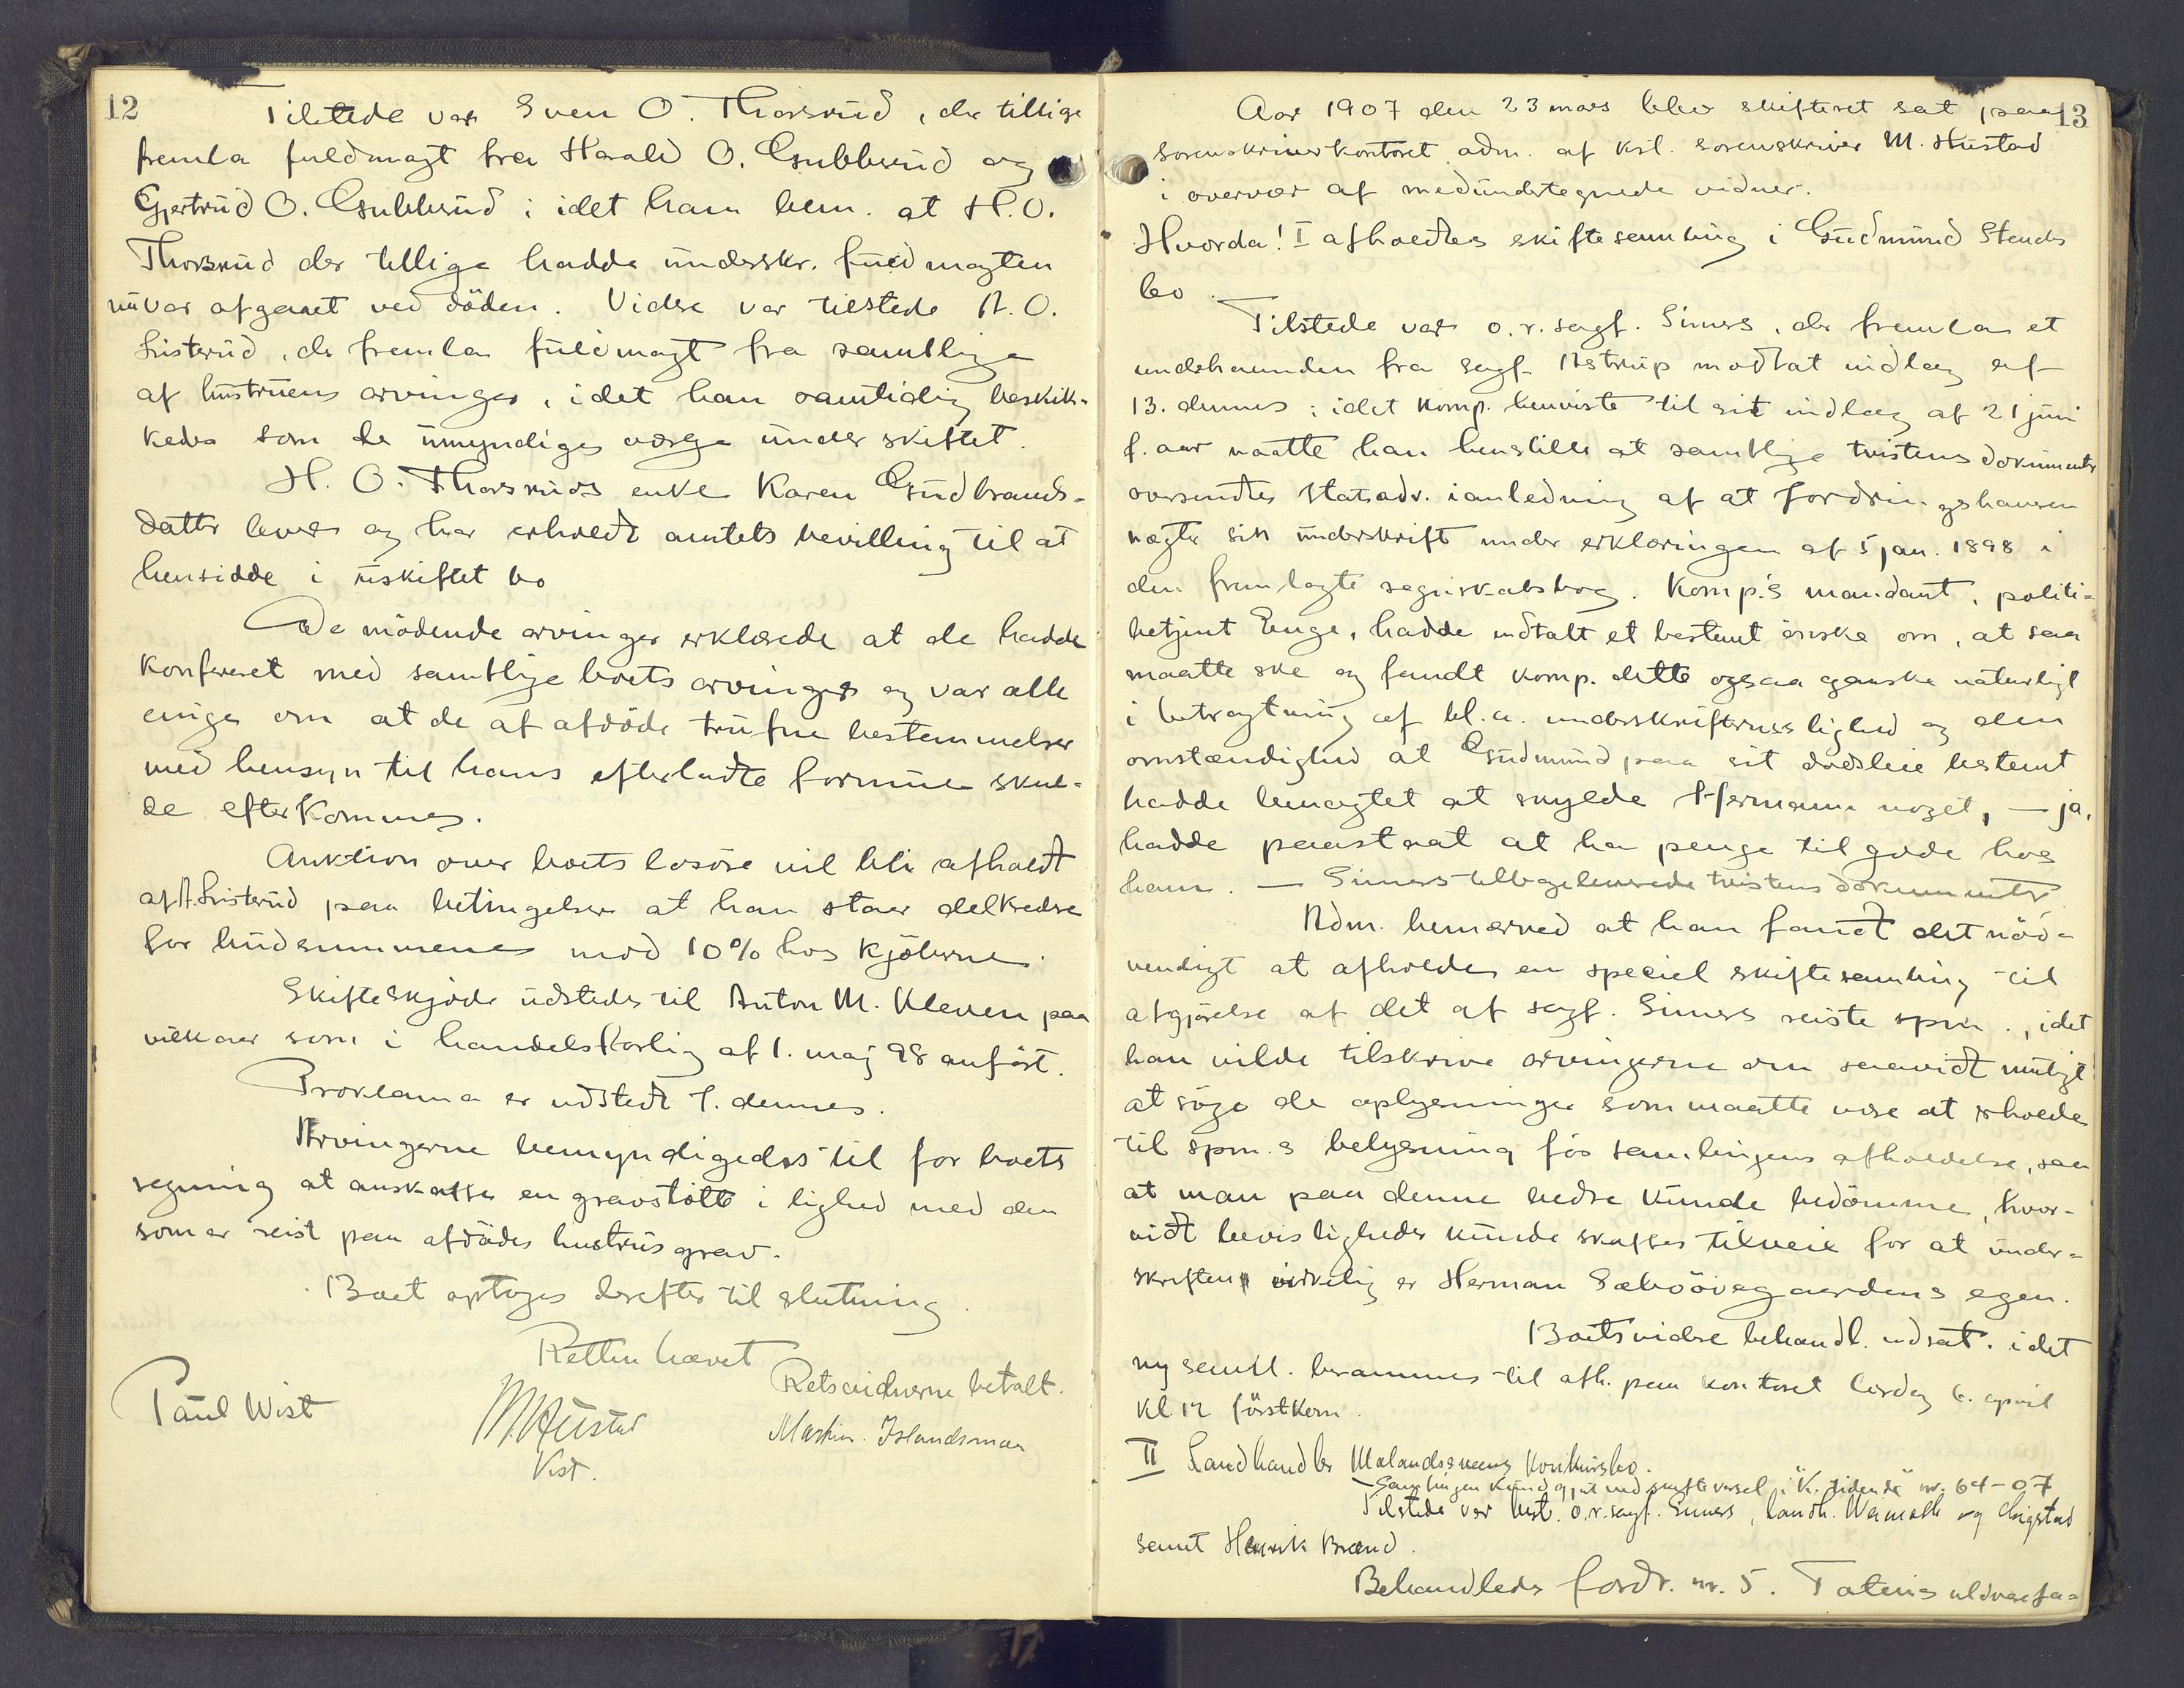 12
Tilstede var Sven O. Thorsrud, der tillige
fremla fuldmagt fra Harald O. Gubberud og
Gjertrud O. Gubberud; idet han bem. at H. O.
Thorsrud der tillige hadde underskr. fuldmagten
nu var afgaaet ved döden. Videre var tilstede A. O.
Listerud, der fremla fuldmagt fra samtlige
af hustruens arvinger, idet han samtidig beskik-
kedes som de umyndiges værge under skiftet.
H. O. Thorsruds enke Karen Gudbrands-
datter lever og har erholdt amtets bevilling til at
hensidde i uskiftet bo
De mödende arvinger erklærede at de hadde
konfereret med samtlige boets arvinger og var alle
enige om at de af afdöde trufne bestemmelser
med hensyn til hans efterladte formue skul-
de efterkommes.
Auktion over boets lösöre vil bli afholdt
af A. Listerud paa betingelse at han staar delkredere
for budsummene mod 10% hos kjöberne.
Skifteskjöde udstedes til Anton M. Kleven paa
vilkaar som i handelsforlig af 1. maj 98 anfört.
Proklama er udstedt 7. dennes.
Arvingerne bemyndigedes til for boets
regning at anskaffe en gravstötte i lighed med den
som er reist paa afdödes hustrus grav.
Boet optages derefter til slutning.
Retten hævet
Retsvidnerne betalt.
Paul Wist
MHustad
Kst.
Martin Islandsmoen
13
Aar 1907 den 23 mars blev skifteret sat paa
sorenskriverkontoret adm. af kst. sorenskriver M. Hustad
i overvær af medundertegnede vidner.
Hvorda! I afholdtes skiftesamling i Gudmund Stends
bo.
Tilstede var o.r.sagf. Siners, der fremla et
underhaanden fra sagf. Astrup modtat indlæg af
13. dennes; idet komp. henviste til sit indlæg af 21 juni
f. aar maatte han henstille at samtlige tvistens dokumenter
oversendtes statsadv. i anledning af at fordringshaveren
nægter sin underskrift under erklæringen af 5 jan. 1898 i
den fremlagte regnskabsbog. Komp's mandant, politi-
betjent Enge, hadde udtalt et bestemt önske om, at saa
maatte ske og fandt komp. dette ogsaa ganske naturligt
i betragtning af bl. a. underskrifternes lighed og den
omstændighed at Gudmund paa sit dödsleie bestemt
hadde benægtet at skylde Hermann noget, — ja,
hadde paastaat at ha penge tilgode hos
ham. — Siners tilbageleverede tvistens dokumenter
Adm. bemærked at han fandt det nöd-
vendigt at afholde en speciel skiftesamling til
afgjörelse af det af sagf. Siners reiste spm., idet
han vilde tilskrive arvingerne om saavidt muligt
at söge de oplysninger som maatte være at erholde
til spm.s belysning för samlingens afholdelse, saa
at man paa denne bedre kunde bedömme, hvor-
vidt bevisligheder kunde skaffes tilveie for at under-
skriften virkelig er Herman Sæboövegaardens egen.
Boets videre behandl. udsat. idet
ny saml. berammes til afh. paa kontoret lördag 6. april
kl. 12 förstkom.
II Landhandler Mælandsmoens konkursbo.
— Samlingen kundgjort med varsel i "K. tidende" nr. 64-07
Tilstede var best. o.r.sagf. Siners, landh. og
samt Henrik Brænd.
Behandledes fordr. nr. 5. Totens uldvarefa-